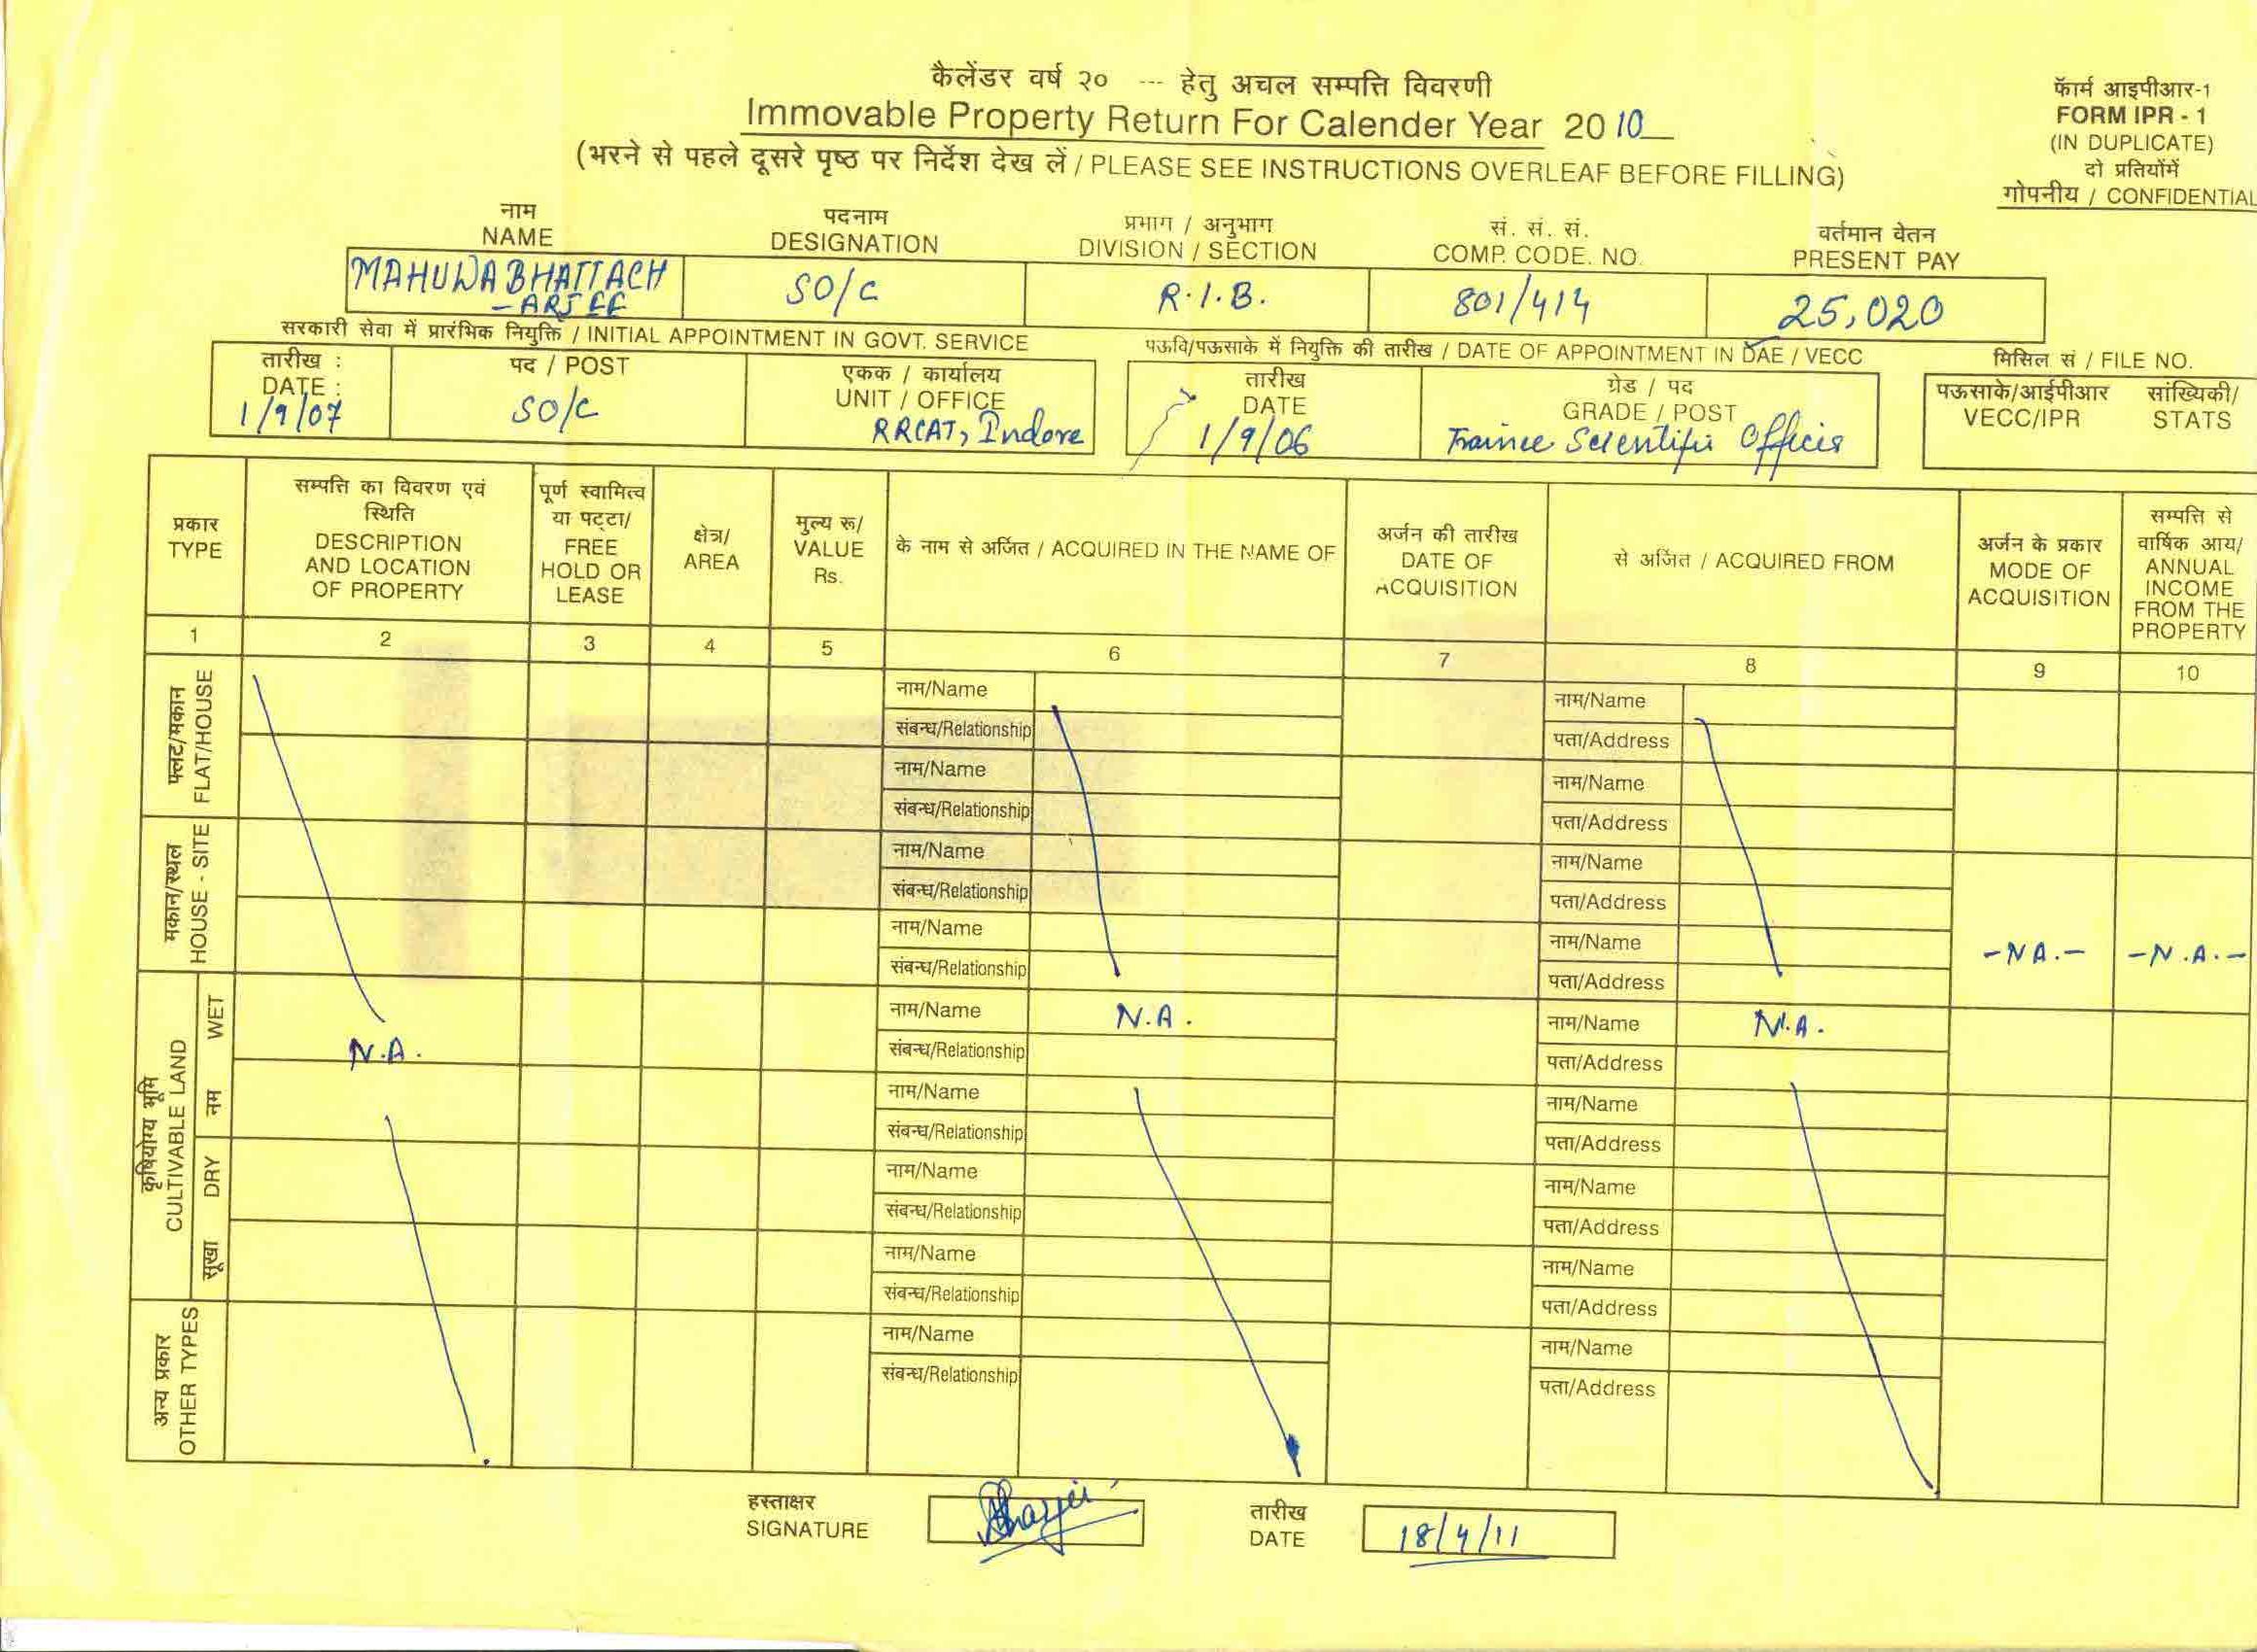 कैलेंडर वर्ष २० --- हेतु अचल सम्पत्ति विवरणी
Immovable Property Return For Calender Year 2010
(भरने से पहले दूसरे पृष्ठ पर निर्देश देख लें / PLEASE SEE INSTRUCTIONS OVERLEAF BEFORE FILLING)
फॅार्म आइपीआर-1
FORM IPR - 1
(IN DUPLICATE)
दो प्रतियोंमें
गोपनीय / CONFIDENTIAL
नाम पदनाम प्रभाग / अनुभाग सं. सं. सं. वर्तमान वेतन
NAME DESIGNATION DIVISION / SECTION COMP. CODE. NO. PRESENT PAY
MAHUWA BHATTACH SO/C R.I.B. 801/414 25,020
-ARJEE
सरकारी सेवा में प्रारंभिक नियुक्ति / INITIAL APPOINTMENT IN GOVT. SERVICE
तारीख : पद / POST एकक / कार्यालय
DATE : UNIT / OFFICE
1/9/07 SO/C RRCAT, Indore
पऊवि/पऊसाके में नियुक्ति की तारीख / DATE OF APPOINTMENT IN DAE / VECC
तारीख ग्रेड / पद
DATE GRADE / POST
1/9/06 Trainee Scientific Officer
मिसिल सं / FILE NO.
पऊसाके/आईपीआर सांख्यिकी/
VECC/IPR STATS
प्रकार
TYPE
सम्पत्ति का विवरण एवं
स्थिति
DESCRIPTION
AND LOCATION
OF PROPERTY
पूर्ण स्वामित्व
या पट्टा/
FREE
HOLD OR
LEASE
क्षेत्र/
AREA
मुल्य रू/
VALUE
Rs.
के नाम से अर्जित / ACQUIRED IN THE NAME OF
अर्जन की तारीख
DATE OF
ACQUISITION
से अर्जित / ACQUIRED FROM
अर्जन के प्रकार
MODE OF
ACQUISITION
सम्पत्ति से
वार्षिक आय/
ANNUAL
INCOME
FROM THE
PROPERTY
1 2 3 4 5 6 7 8 9 10
फ्लट/मकान
FLAT/HOUSE
नाम/Name नाम/Name
संबन्ध/Relationship पता/Address
नाम/Name नाम/Name
संबन्ध/Relationship पता/Address
मकान/स्थल
HOUSE - SITE
नाम/Name नाम/Name
संबन्ध/Relationship पता/Address
नाम/Name नाम/Name -NA.- -N.A.-
संबन्ध/Relationship पता/Address
कृषियोग्य भूमि
CULTIVABLE LAND
नम WET
नाम/Name N.A. नाम/Name N.A.
N.A. संबन्ध/Relationship पता/Address
नाम/Name नाम/Name
संबन्ध/Relationship पता/Address
सूखा DRY
नाम/Name नाम/Name
संबन्ध/Relationship पता/Address
नाम/Name नाम/Name
संबन्ध/Relationship पता/Address
अन्य प्रकार
OTHER TYPES
नाम/Name नाम/Name
संबन्ध/Relationship पता/Address
हस्ताक्षर तारीख
SIGNATURE DATE 18/4/11